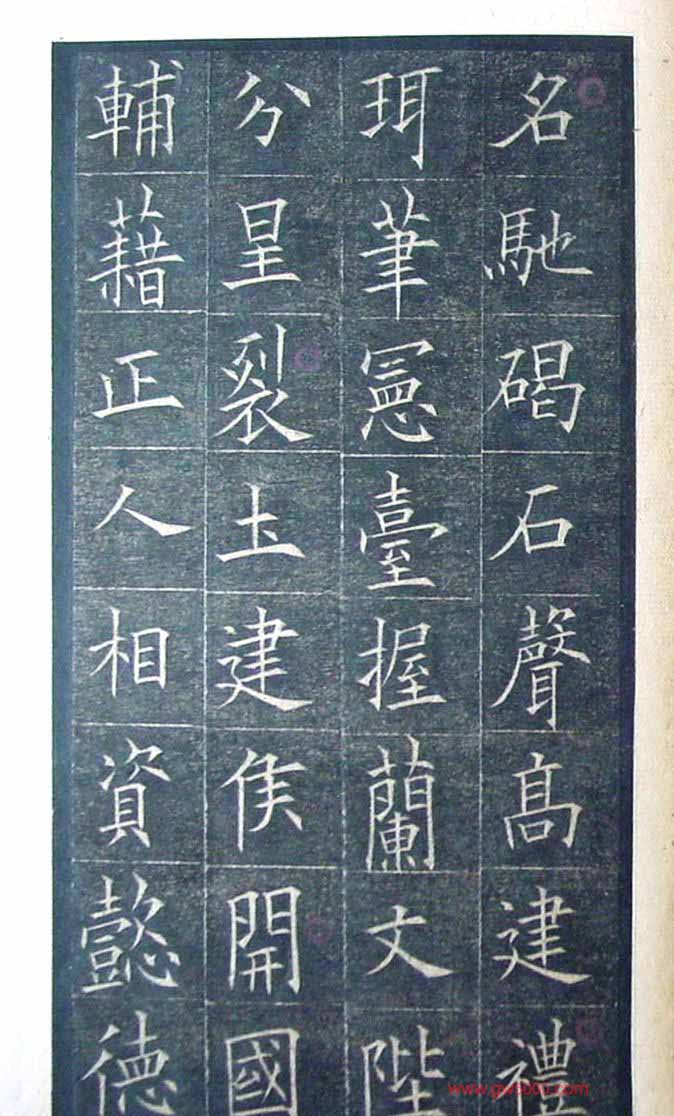 名馳碣石聲髙建禮
珥筆憲臺握蘭文陛
分星裂圡建侯開國
輔藉正人相資懿德